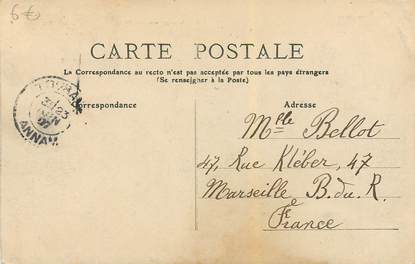 6€
CARTE POSTALE
La Correspondance au recto n'est pas acceptée par tous les pays étrangers
(Se renseigner à la Poste)
Correspondance
Adresse
TOURANE
23
ANNAM
Mlle Bellot
47, Rue Kléber, 47
Marseille B. du R.
France